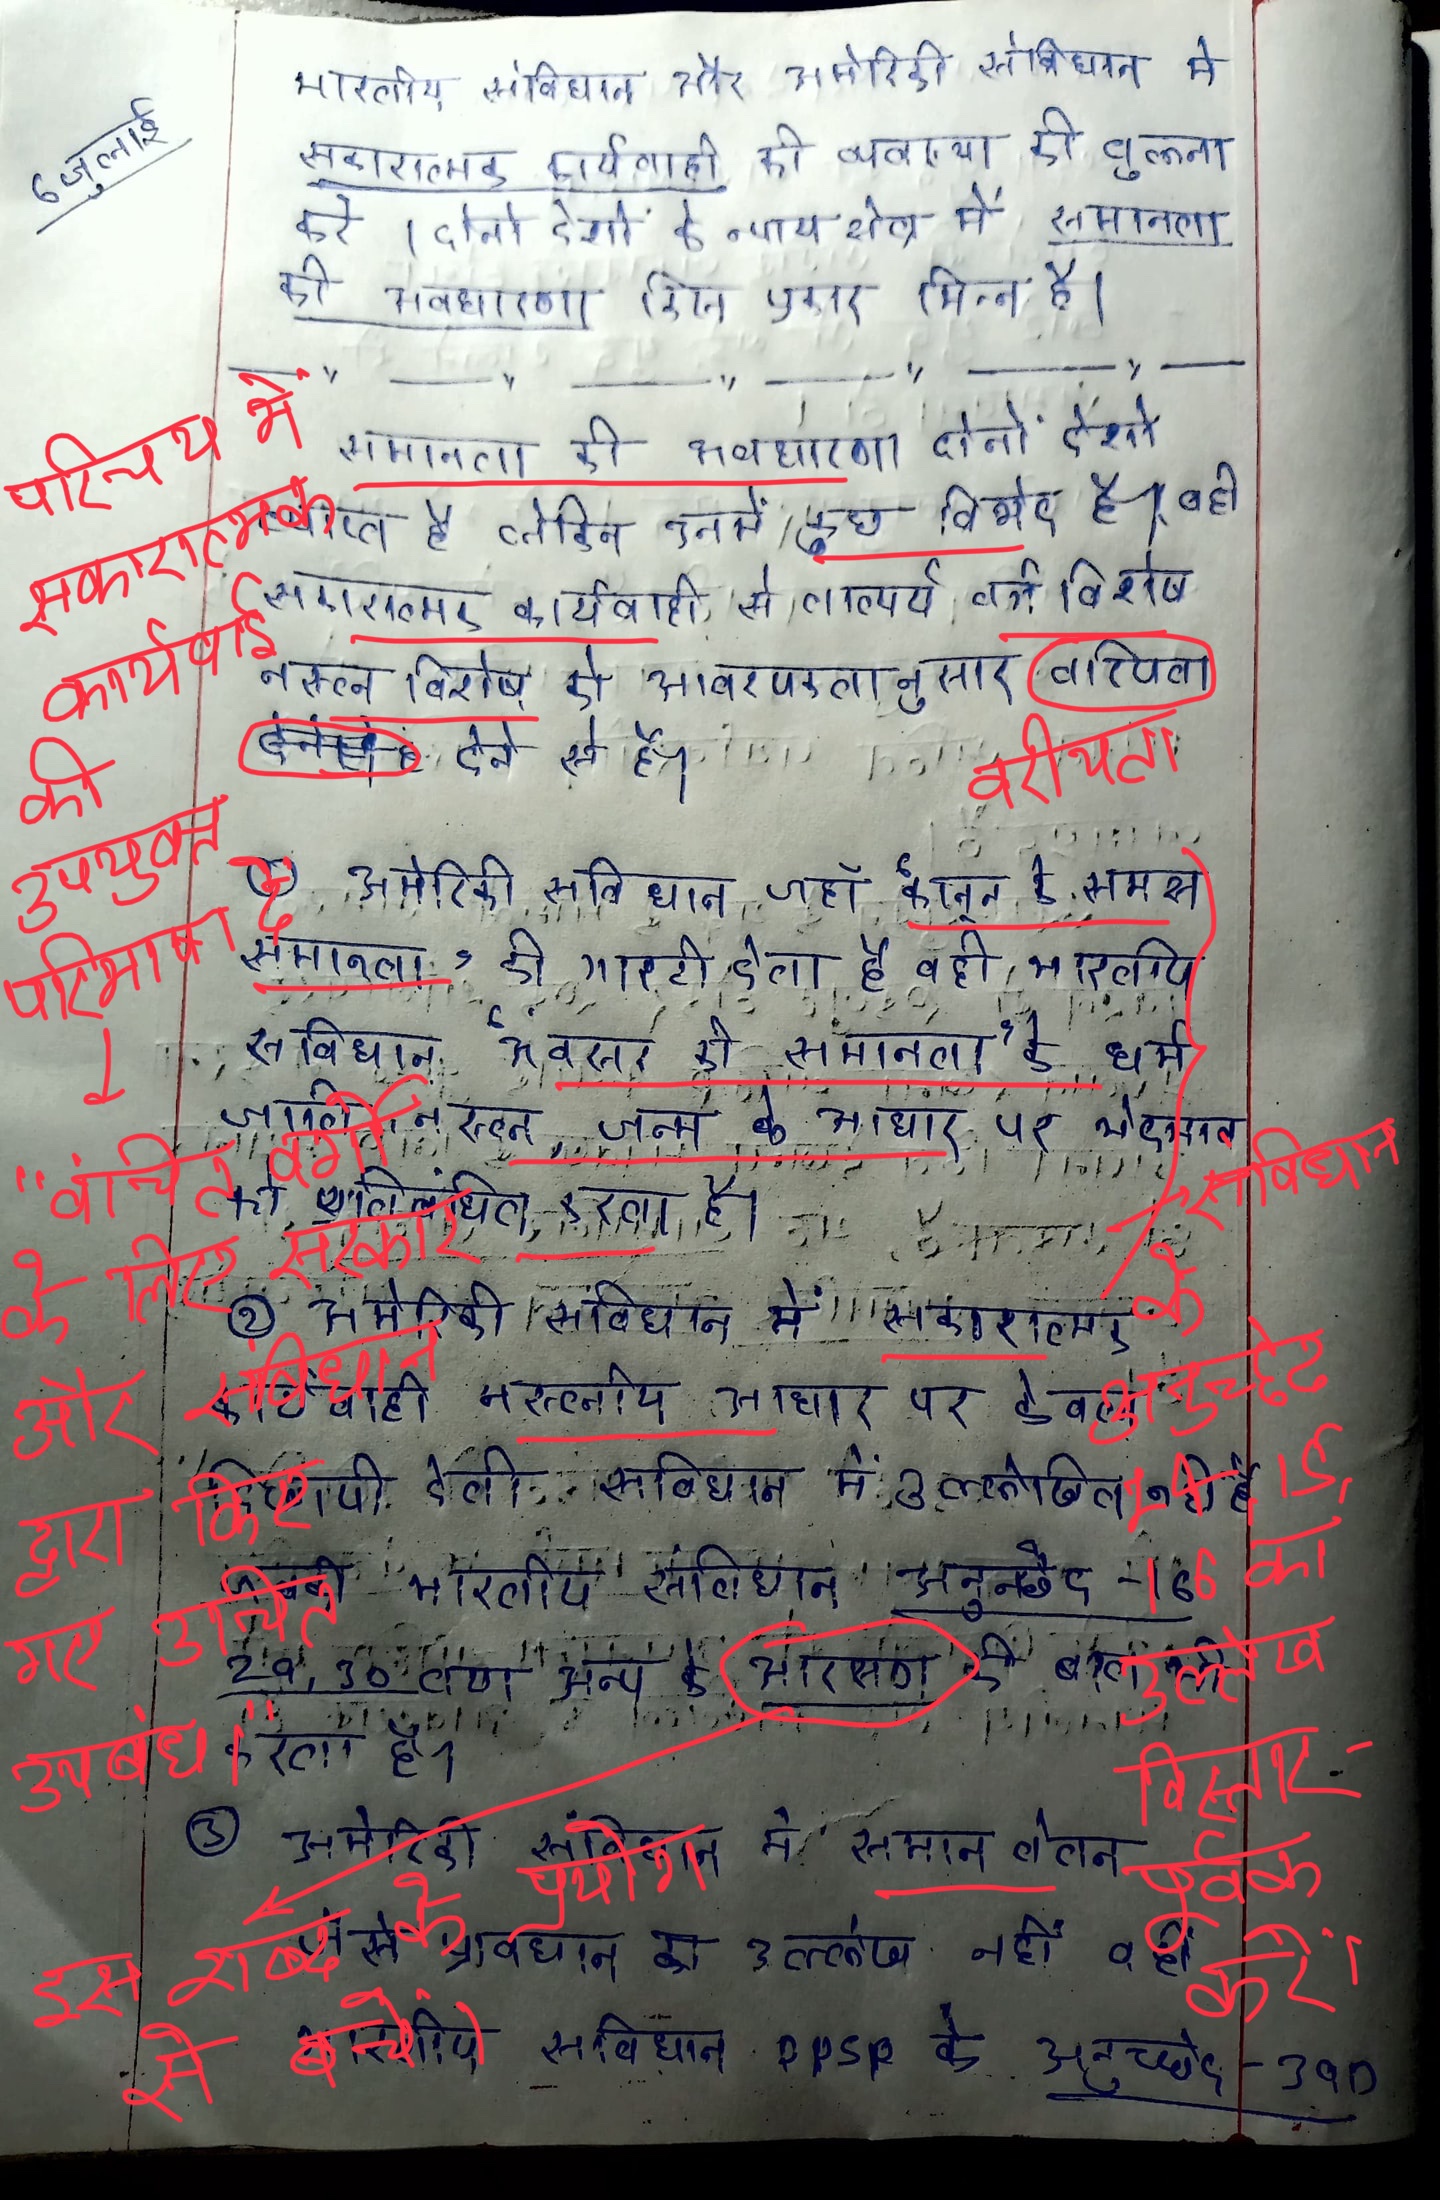 6 जुलाई
भारतीय संविधान और अमेरिकी संविधान में
सकारात्मक कार्यवाही की व्यवस्था की तुलना
करे । दोनो देशों के न्याय क्षेत्र में समानता
की अवधारणा किस प्रकार भिन्न है।
समानता की अवधारणा दोनों देशो
व्याप्त है लेकिन उनमें कुछ विभेद है। वही
सकारात्मक कार्यवाही से तात्पर्य वर्ग विशेष
नस्ल विशेष को आवश्यकतानुसार वरियता
देने से है।
① अमेरिकी सविधान जहाँ 'कानून के समक्ष
समानता' की गारंटी देता है वही भारतीय
सविधान 'अवसर की समानता' के धर्म
जाति नस्ल, जन्म के आधार पर भेदभाव
को प्रतिबंधित करता है।
② अमेरिकी संविधान में सकारात्मक
कार्यवाही नस्लीय आधार पर केवल
दिखायी देती सविधान में उल्लेखित नही है
जबकी भारतीय संविधान अनुच्छेद - 16
29, 30 तथा अन्य के आरक्षण की बात
करता है।
③ अमेरिकी संविधान मे समान वेतन
जैसे प्रावधान का उल्लेख नहीं वही
भारतीय सविधान DPSP के अनुच्छेद - 39D
परिचय में
सकारात्मक
कार्यवाई
की
उपयुक्त
परिभाषा दे
"वंचित वर्गो
के लिए सरकार
और संविधान
द्वारा किए
गए उचित
उपबंध।"
वरीयता
संविधान
के
अनुच्छेद
15,
16 का
उल्लेख
विस्तार-
पूर्वक
करें।
इस शब्द के प्रयोग
से बचें